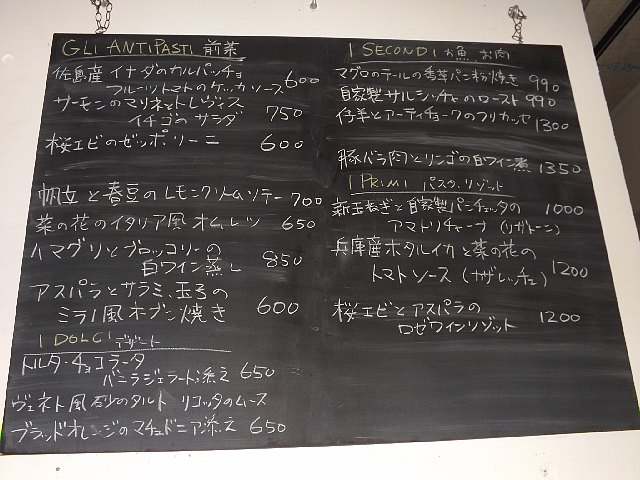 GLI ANTIPASTI 前菜
佐島産 イナダのカルパッチョ
フルーツトマトのケッカソース 600
サーモンのマリネとトレヴィス
イチゴのサラダ 750
桜エビのゼッポリーニ 600
帆立と春豆のレモンクリームソテー 700
菜の花のイタリア風オムレツ 650
ハマグリとブロッコリーの
白ワイン蒸し 850
アスパラとサラミ、玉子の
ミラノ風オーブン焼き 600
I DOLCI デザート
トルタ・チョコラータ
バニラジェラート添え 650
ヴェネト風 砂のタルト リコッタのムース
ブラッドオレンジのマチェドニア添え 650
I SECONDI お魚 お肉
マグロのテールの香草パン粉焼き 990
自家製サルシッチャのロースト 990
仔羊とアーティチョークのフリカッセ 1300
豚バラ肉とリンゴの白ワイン煮 1350
I PRIMI パスタ、リゾット
新玉ねぎと自家製パンチェッタの 1000
アマトリチャーナ (リガトーニ)
兵庫産ホタルイカと菜の花の
トマトソース (ナザレッチェ) 1200
桜エビとアスパラの
ロゼワインリゾット 1200